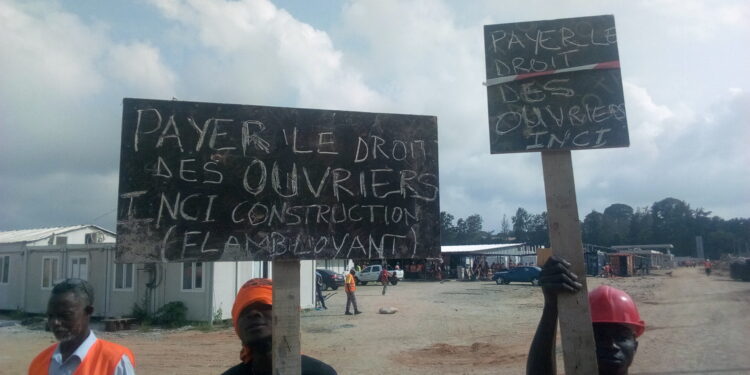 PAYER LE DROIT
DES OUVRIERS
INCI CONSTRUCTION
(FLAMBLLOYANT)
PAYER LE
DROIT
DES
OUVRIERS
INCI